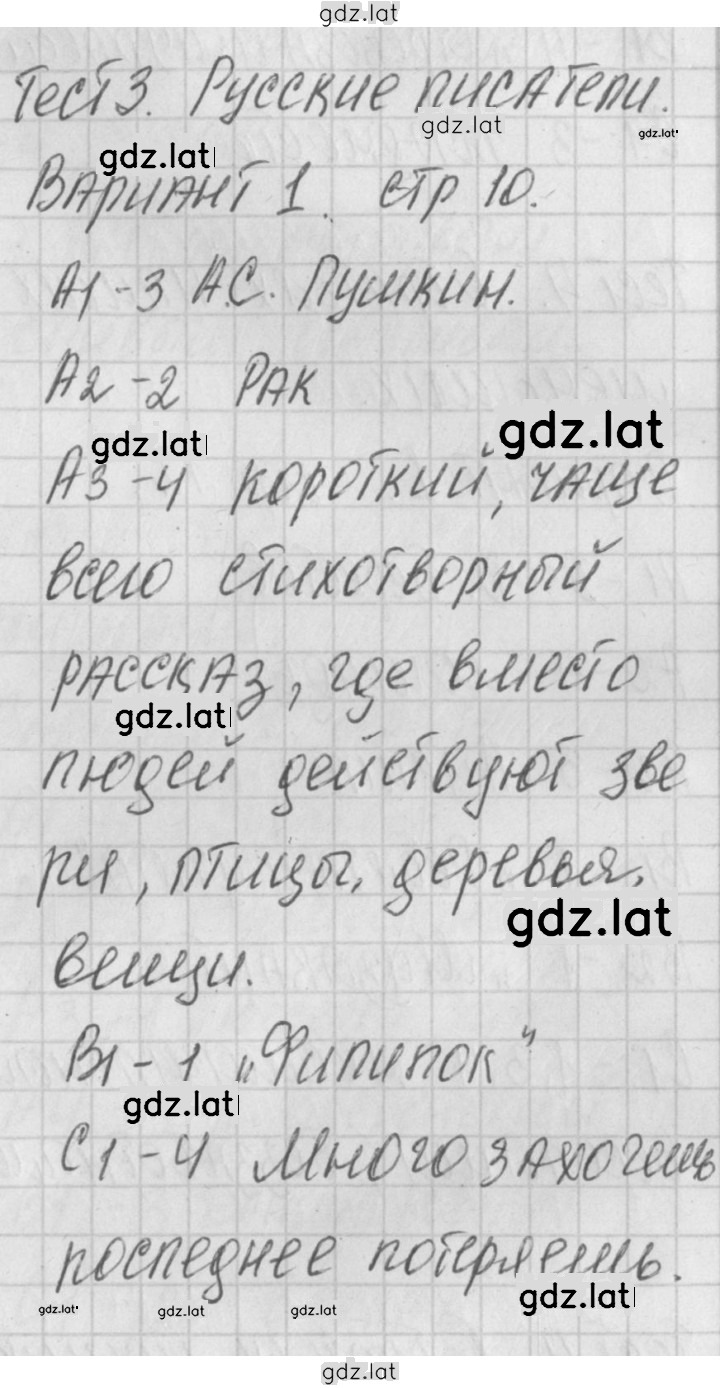 gdz.lat
Тест 3. Русские писатели.
gdz.lat
gdz.lat
gdz.lat
Вариант 1. стр 10.
А1 - 3 А.С. Пушкин.
А2 - 2 Рак
gdz.lat
gdz.lat
А3 - 4 короткий, чаще
всего стихотворный
рассказ, где вместо
gdz.lat
людей действуют зве
ри, птицы, деревья,
gdz.lat
вещи.
В1 - 1 „Филипок"
gdz.lat
С1 - 4 Много захочешь
последнее потеряешь.
gdz.lat
gdz.lat gdz.lat gdz.lat
gdz.lat